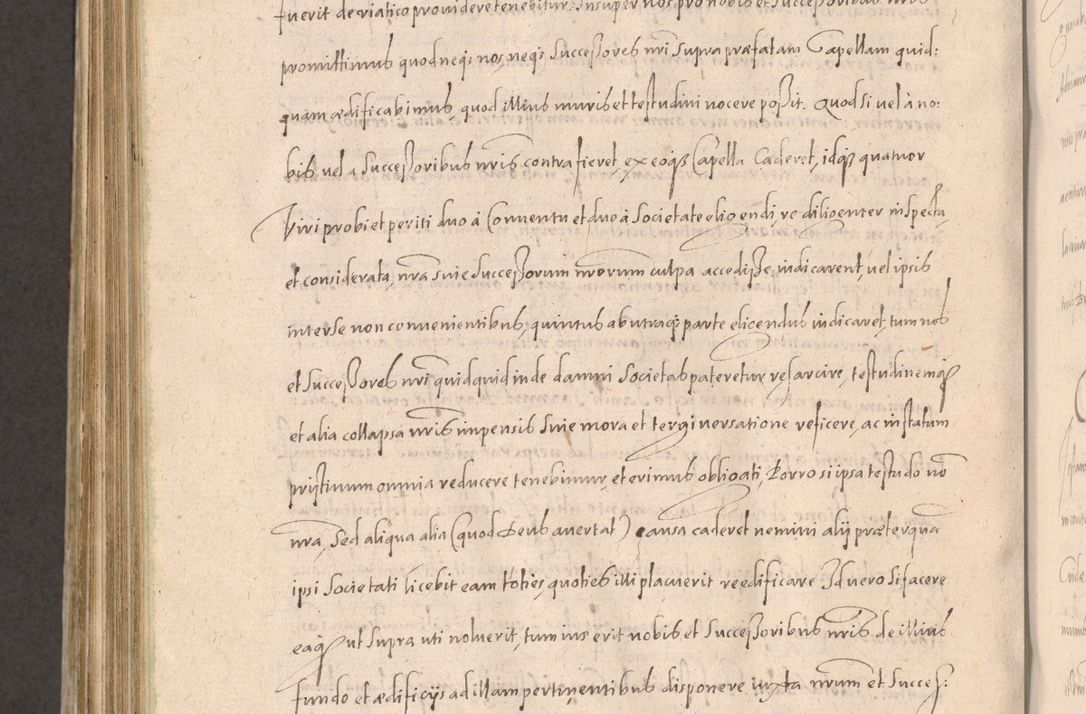 fuerit de viatico providere tenebitur. Insuper nos pro nobis et Successoribus nris
promittimus quod neqз nos, neqз Successores nri supra praefatam Capellam quid:
quam aedificabimus, quod illius muris et testudini nocere possit. Quod si vel à no:
bis vel a Successoribus nris contrafieret, ex eoqз Capella Caderet, idqз quatuor
Viri probi et periti duo à Conventu et duo à Societate eligendi re diligenter inspecta
et considerata, nra sive Successorum nrorum culpa accedisse iudicarent, vel ipsis
inter se non convenientibus, quintus ab utraqз parte eligendus iudicaret, tum nos
et Successores nri quidquid inde damni Societas pateretur resarcire, testudinemqз
et alia collapsa nris impensis sine mora et tergiversatione reficere, ac in statum
pristinum omnia reducere tenebimur, et erimus obligati, Porro si ipsa testudo nō
nra, Sed aliqua alia (quod Deus avertat) causa caderet nemini alij praeterquā
ipsi Societati licebit eam toties, quoties illi placuerit reedificare Id vero si facere
eaqз ut supra uti noluerit, tum ius erit nobis et Successoribus nris de illius
fundo et aedificijs ad illam pertinentibus disponere iuxta nrum et Success: